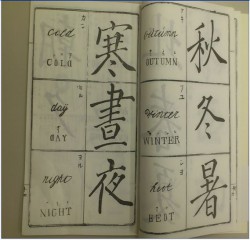 秋
autumn
AUTUMN
冬
winter
WINTER
暑
heat
寒
cold
COLD
晝
day
DAY
夜
night
NIGHT